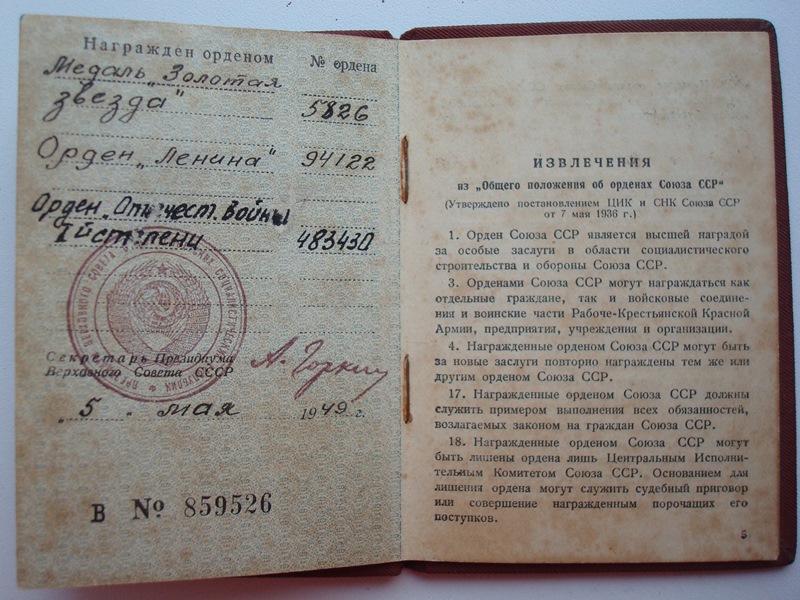 Награжден орденом № ордена
Медаль „Золотая
звезда" 5826
Орден „Ленина" 94122
Орден „Отечест. Войны
I й степени 483430
Секретарь Президиума
Верховного Совета СССР А. Горкин
„ 5 „ мая 1949 г.
В № 859526
ИЗВЛЕЧЕНИЯ
из „Общего положения об орденах Союза ССР"
(Утверждено постановлением ЦИК и СНК Союза ССР
от 7 мая 1936 г.)
1. Орден Союза ССР является высшей наградой
за особые заслуги в области социалистического
строительства и обороны Союза ССР.
3. Орденами Союза ССР могут награждаться как
отдельные граждане, так и войсковые соедине-
ния и воинские части Рабоче-Крестьянской Красной
Армии, предприятия, учреждения и организации.
4. Награжденные орденом Союза ССР могут быть
за новые заслуги повторно награждены тем же или
другим орденом Союза ССР.
17. Награжденные орденом Союза ССР должны
служить примером выполнения всех обязанностей,
возлагаемых законом на граждан Союза ССР.
18. Награжденные орденом Союза ССР могут
быть лишены ордена лишь Центральным Исполни-
тельным Комитетом Союза ССР. Основанием для
лишения ордена могут служить судебный приговор
или совершение награжденным порочащих его
поступков.
5